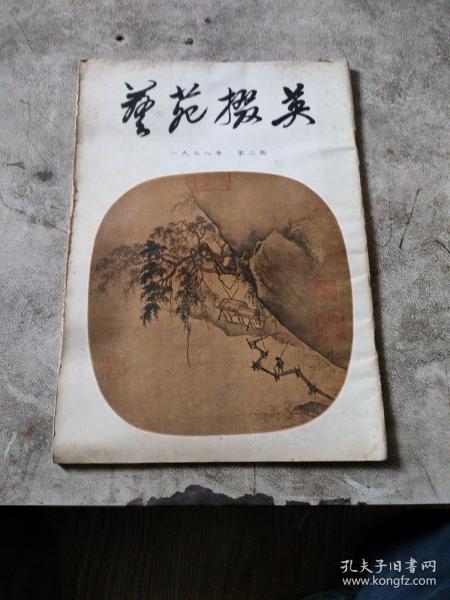 藝苑掇英
一九七八年 第二期
孔夫子旧书网
www.kongfz.com